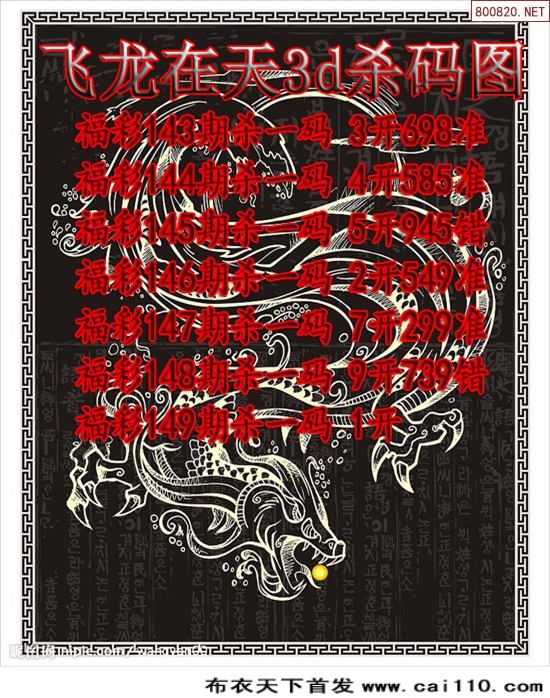 800820.NET
飞龙在天3d杀码图
福彩143期杀一码 3开698准
福彩144期杀一码 4开585准
福彩145期杀一码 5开945错
福彩146期杀一码 2开549准
福彩147期杀一码 7开299准
福彩148期杀一码 9开739错
福彩149期杀一码 1开
布衣天下首发 www.cai110.com